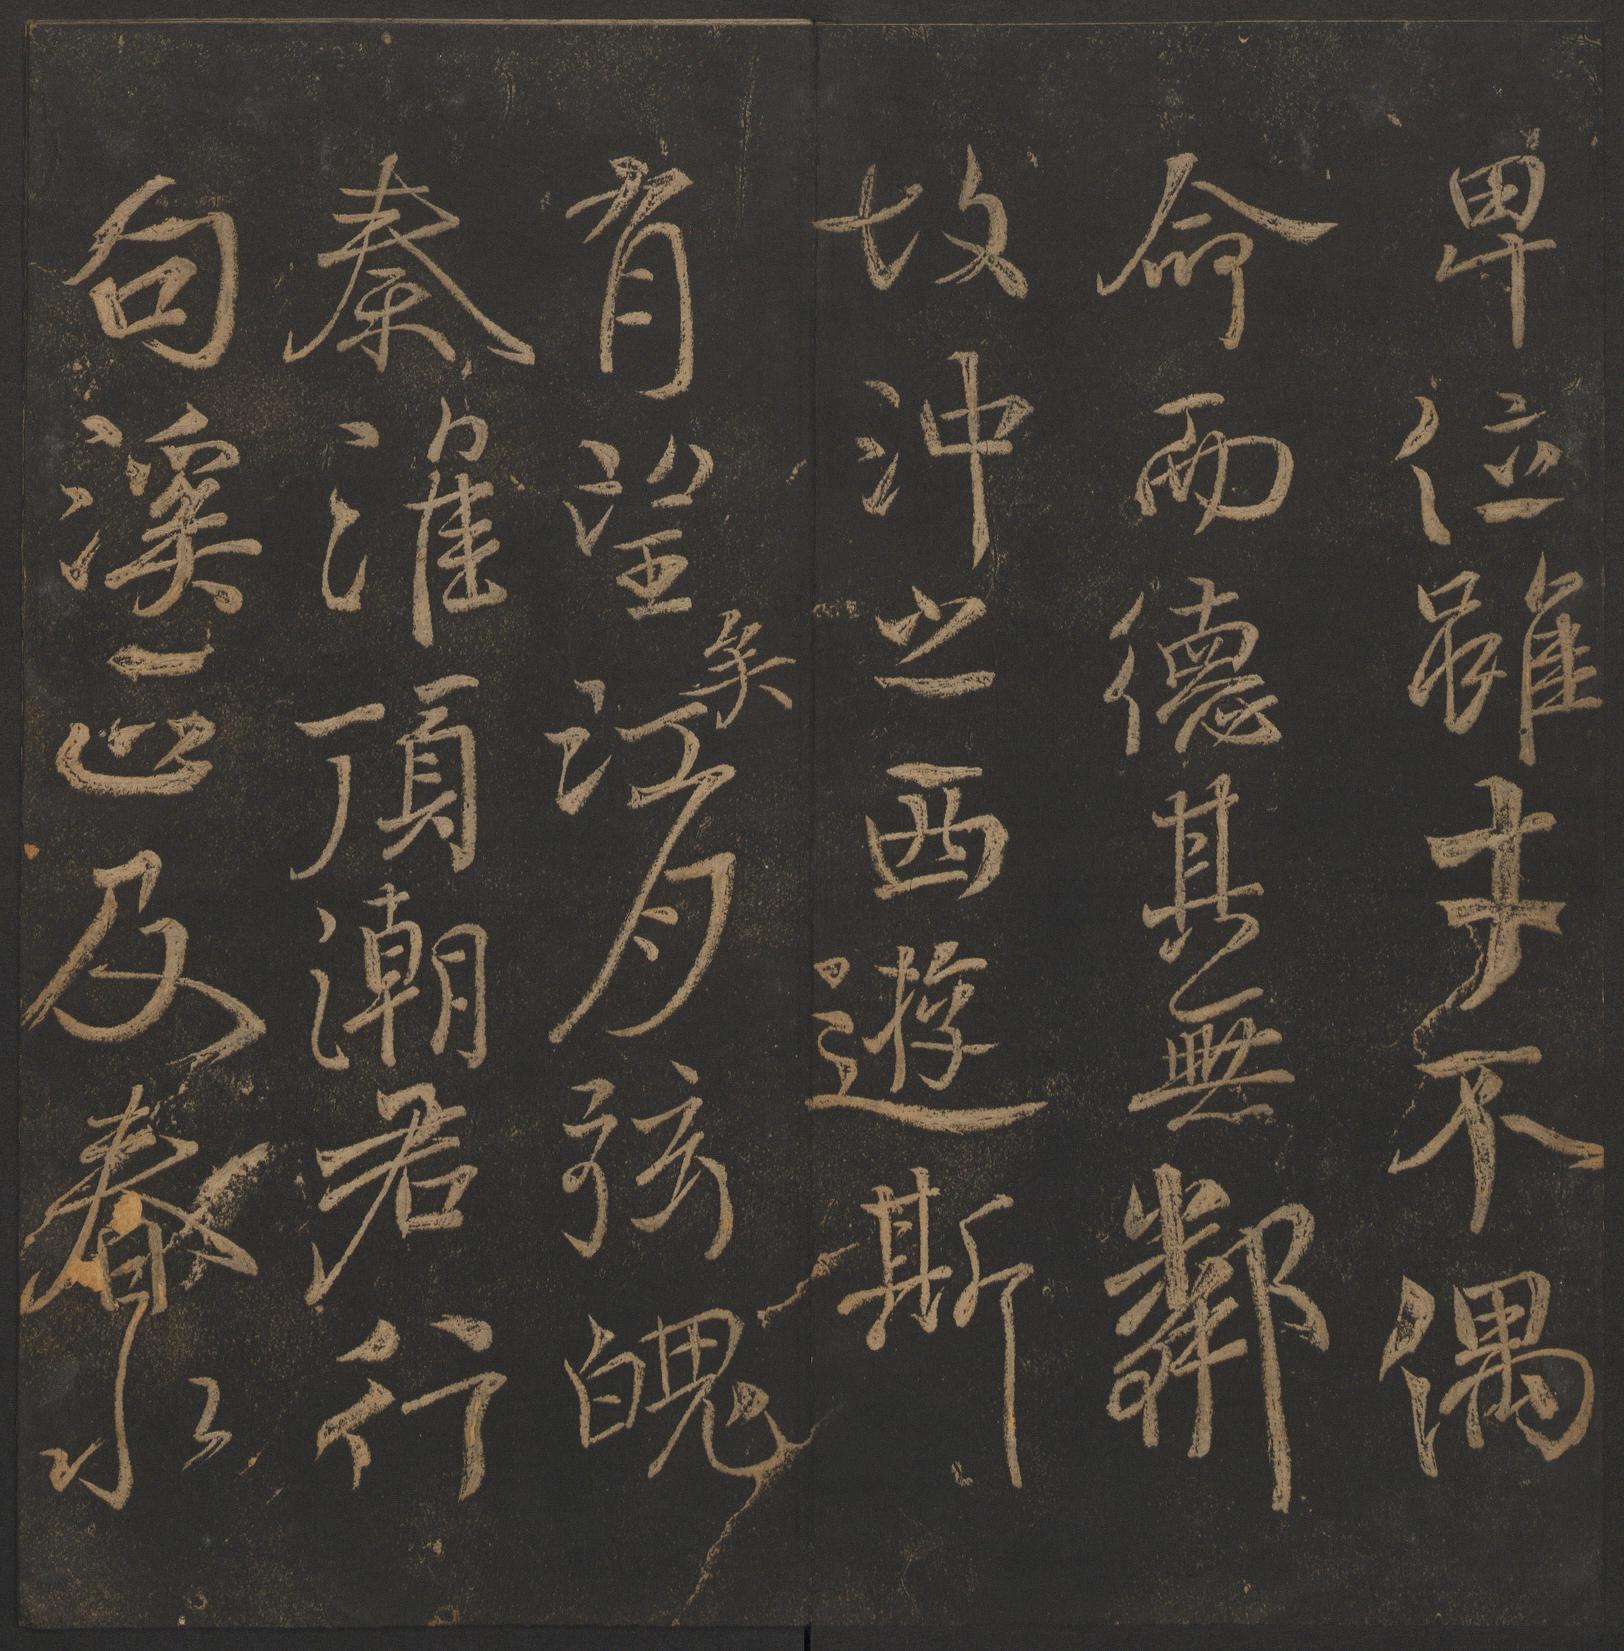 卑位雖才不偶
命而德其無鄰
故沖之西遊斯
有望矣江月弦魄
秦淮頂潮君行
句溪正及春水